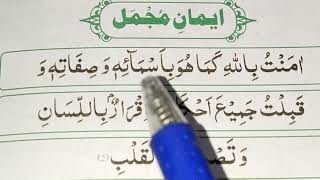 ایمانِ مُجْمَل
اٰمَنْتُ بِاللّٰهِ كَمَا هُوَ بِاَسْمَآئِهٖ وَصِفَاتِهٖ وَ
قَبِلْتُ جَمِيْعَ اَحْكَا قْرَارٌۢ بِاللِّسَانِ
وَتَصْ لْقَلْبِ